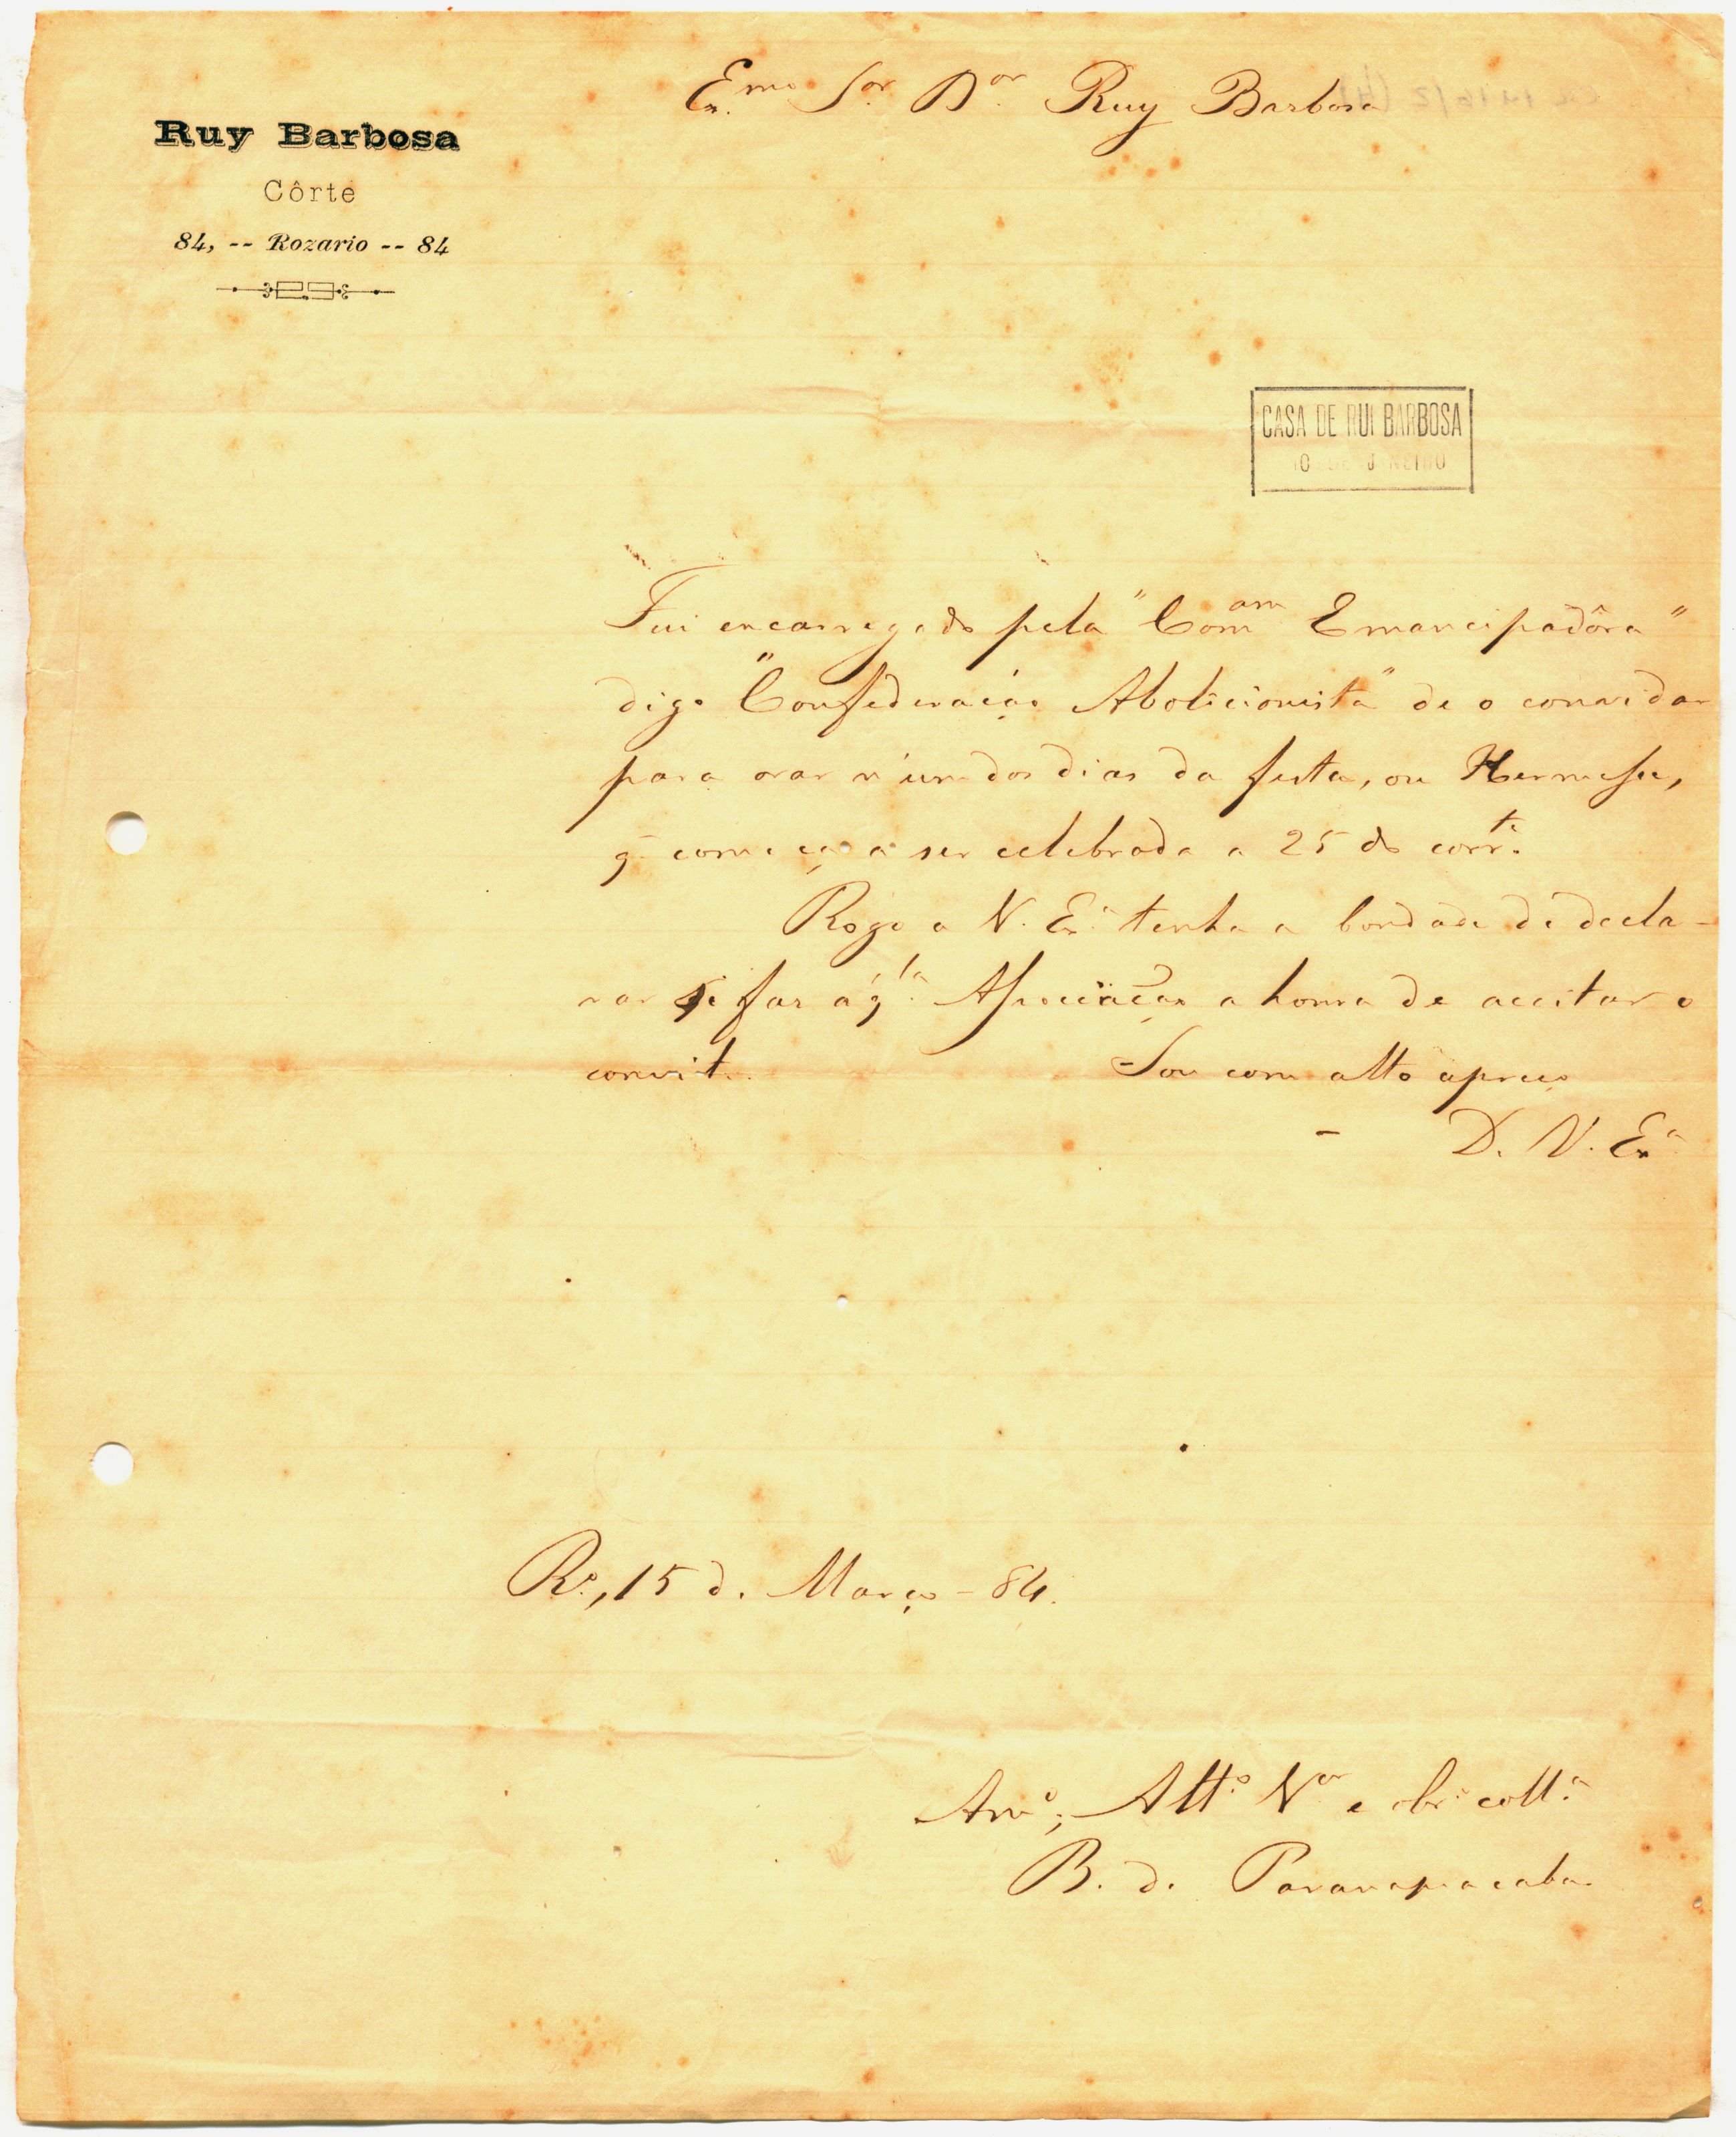 Ex.mo Sor. Dor. Ruy Barbosa
Ruy Barbosa
Côrte
84, -- Rozario -- 84
CASA DE RUI BARBOSA
IO DE JANEIRO
Fui encarregado pela "Comam Emancipadôra"
digo "Confederação Abolicionista" de o convidar
para orar n'um dos dias da festa, ou Kermesse,
q começa a ser celebrada a 25 do corrte.
Rogo a V. Exa. tenha a bondade de decla-
rar se faz áqla. Associação a honra de acceitar o
convite. Sou com alto apreço
- D. V. Exa
Ro., 15 de Março - 84.
Amo., Atto. Vor e obro colla.
B. de Paranapiacaba